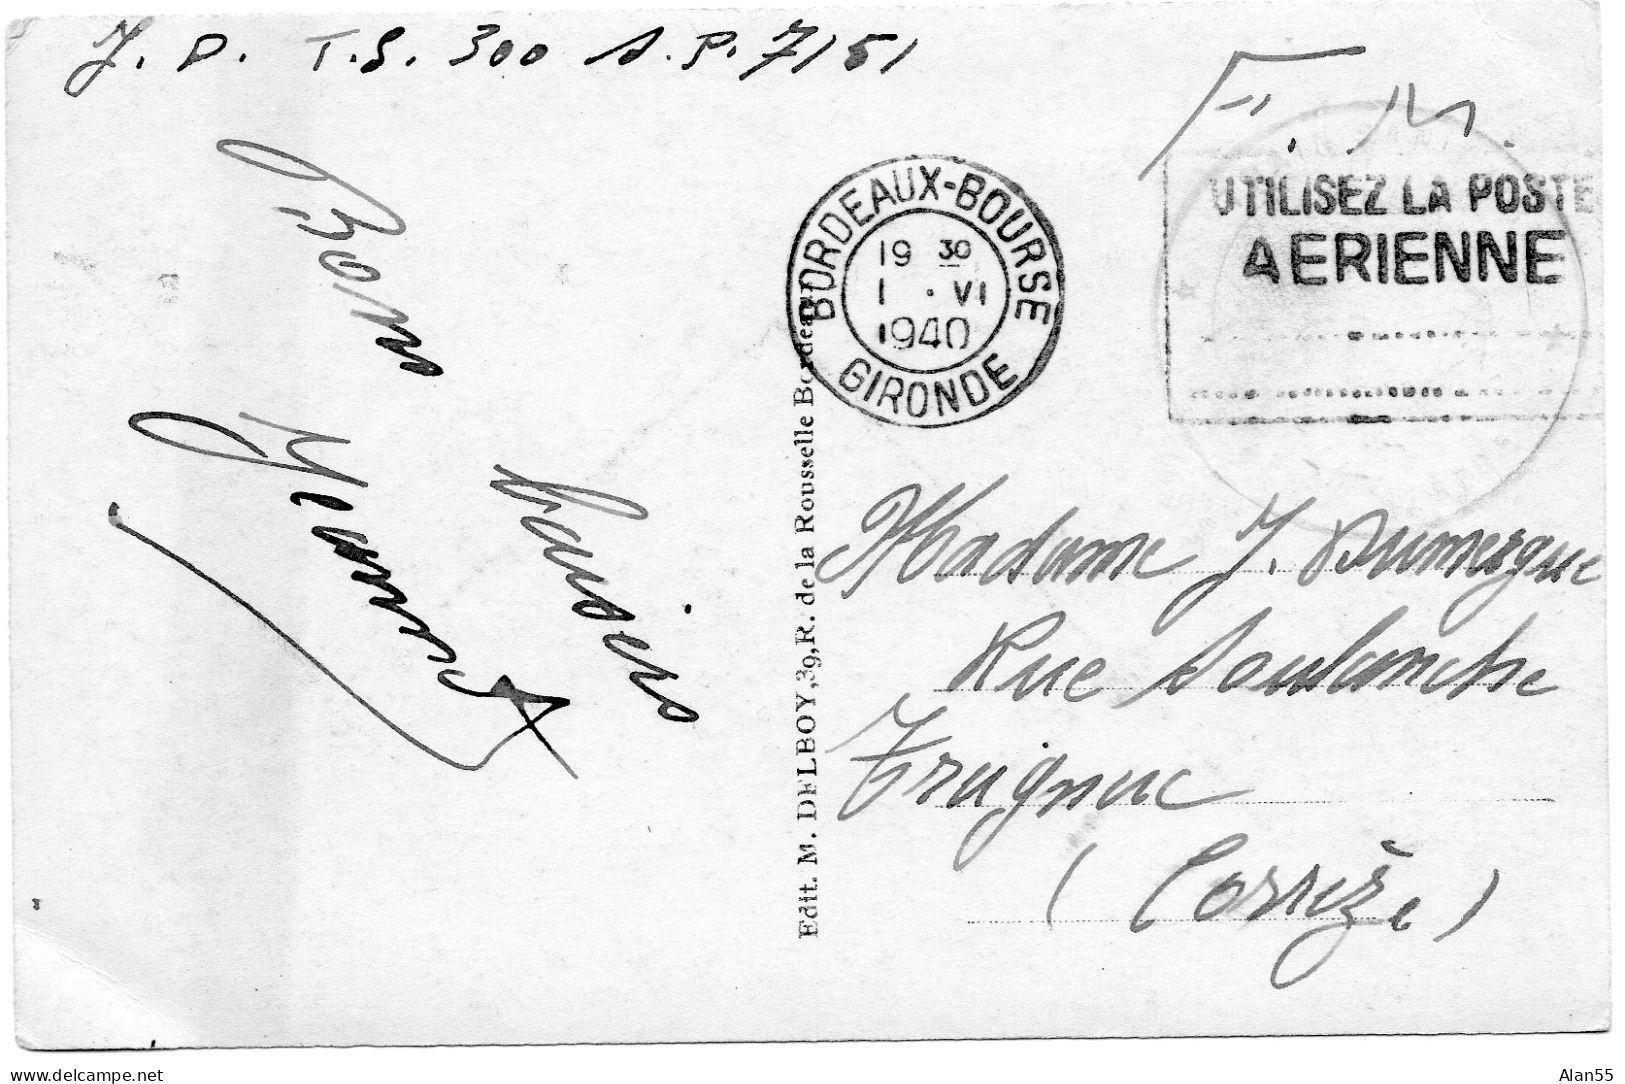 J. D. T.S. 300 S.P. 7151
F. M.
UTILISEZ LA POSTE
AERIENNE
BORDEAUX-BOURSE
19 30
1 . VI
1940
GIRONDE
Bons
baisers
Edit. M. DELBOY, 39, R. de la Rousselle Bordeaux
Madame J. Dumergue
Rue Soulanche
Treignac
(Corrèze)
delcampe.net
Alan55